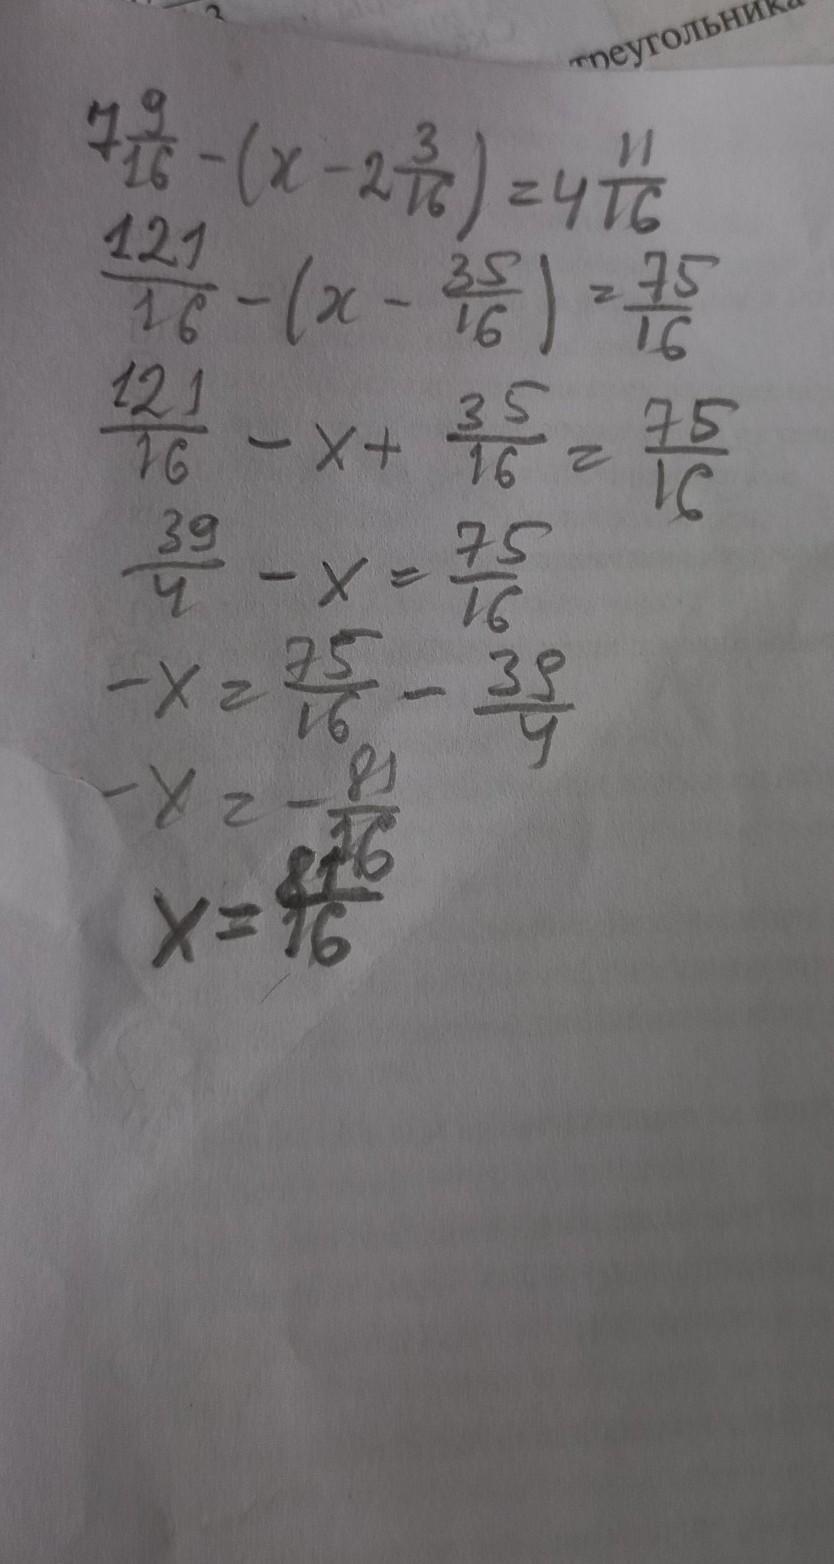 треугольника
7 9/16 - (x - 2 3/16) = 4 11/16
121/16 - (x - 35/16) = 75/16
121/16 - x + 35/16 = 75/16
39/4 - x = 75/16
-x = 75/16 - 39/4
-x = -81/16
x = 81/16